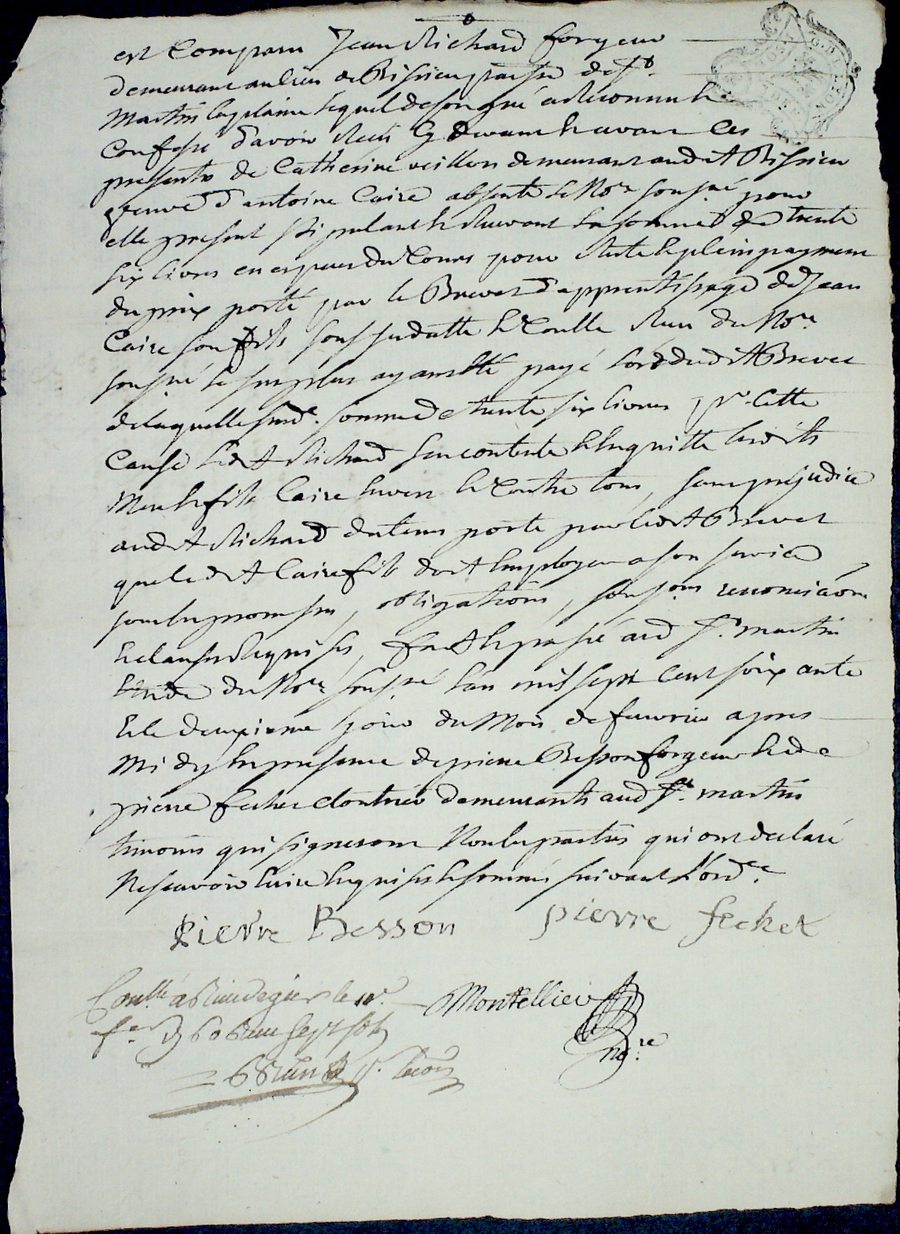 est Comparu Jean Richard forgeur
demeurant au lieu de Bissieu parsse de St
Martin la plaine lequel de son gré a Reconnu &
Confessé d'avoir Receu cy devant & avant Ces
presentes de Catherine demeurant audt Bissieu
veuve d'antoine Caire absente le Nore sousné pour
elle present stipulant & Recevant la somme de trente
six livres en especes du Cours pour Reste & plein payement
du prix porté par le Brevet d'apprentissage de Jean
Caire son fils sous sa datte & Conllé Reçu du Nore
sousné le surplus ayant été payé lors dudt Brevet
de laquelle sude somme de trente six livres pr Cette
Cause ledt Richard s'en contente & en quitte lesdits
Mere & fils Caire envers & Contre tous, sans prejudice
audt Richard du tems porté par ledt Brevet
que ledt Caire fils doit employer a son service
par les promesses, obligations, renonciaons
& clauses Requises, fait & passé aud St martin
Etude du Nore sousné l'an mil sept Cent soixante
& le deuxieme jour du Mois de feuvrier apres
Midy en presence de pierre Besson forgeur & de
pierre fechet cloutrier demeurants aud St martin
temoins qui signeront Non les parties qui ont declaré
Ne scavoir faire Enquises & sommés suivant l'ordce
Pierre Besson pierre fechet
Conllé a Rivedegier le
fer 1760 Reçu sept sols
Montellier
nore